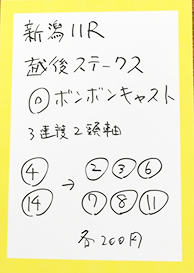 新潟11R
越後ステークス
◎ボンボンキャスト
3連複2頭軸
④ → ② ③ ⑥
⑭ ⑦ ⑧ ⑪
各200円